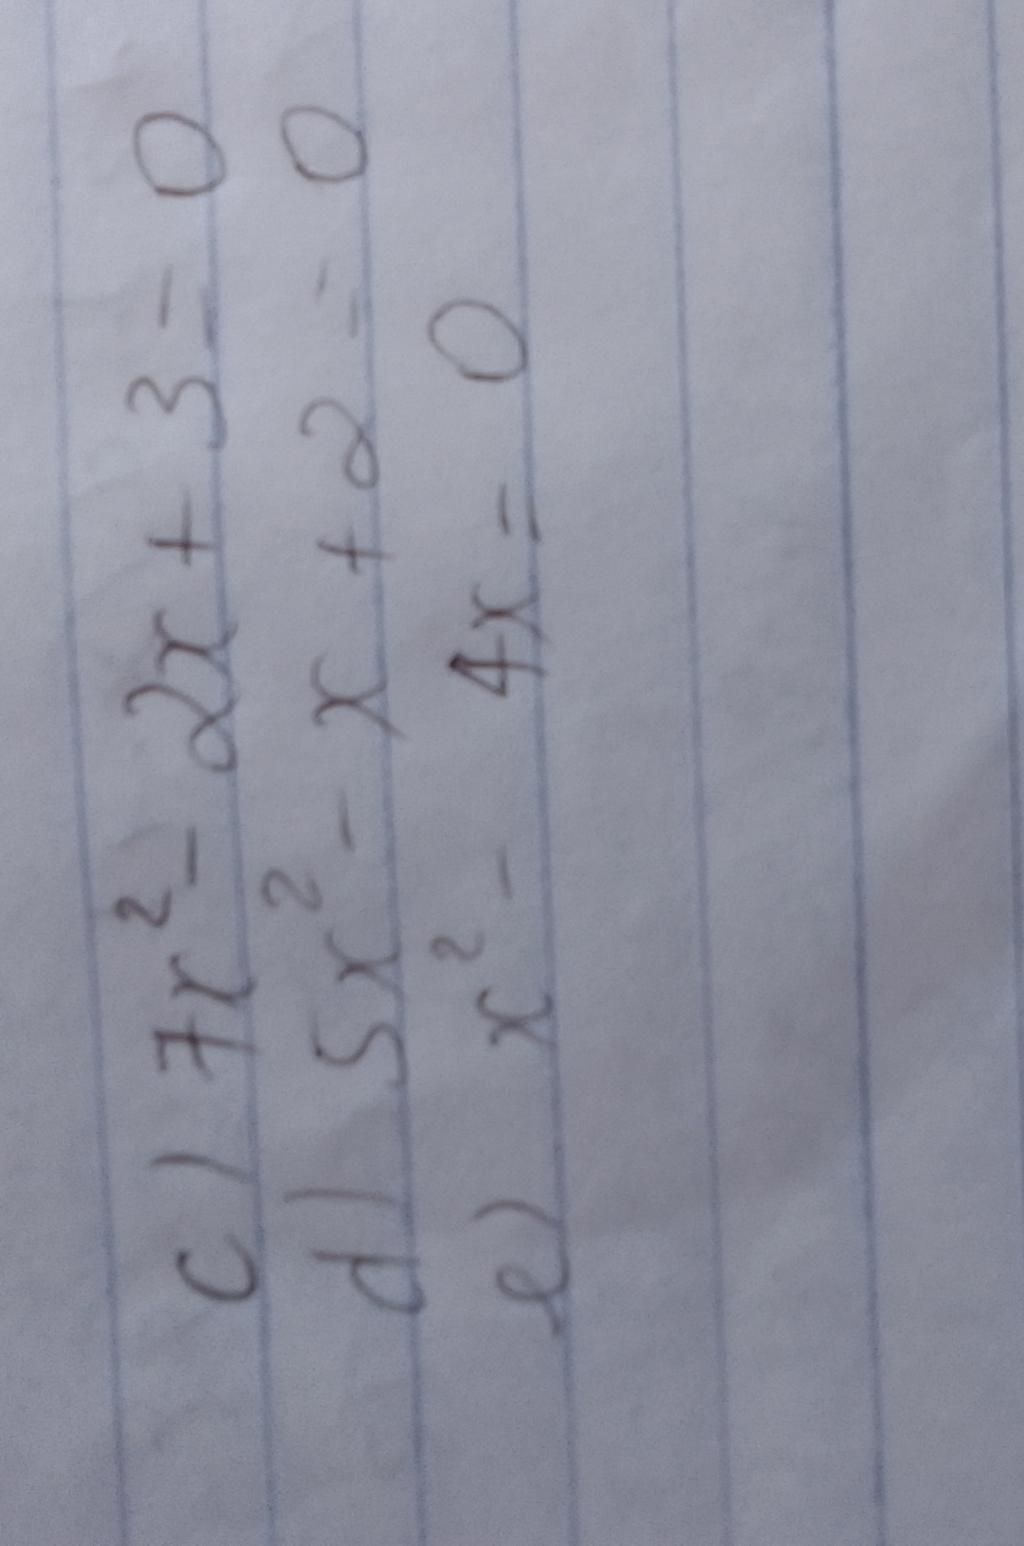 c) 7x² - 2x + 3 = 0
d) 5x² - x + 2 = 0
e) x² - 4x = 0